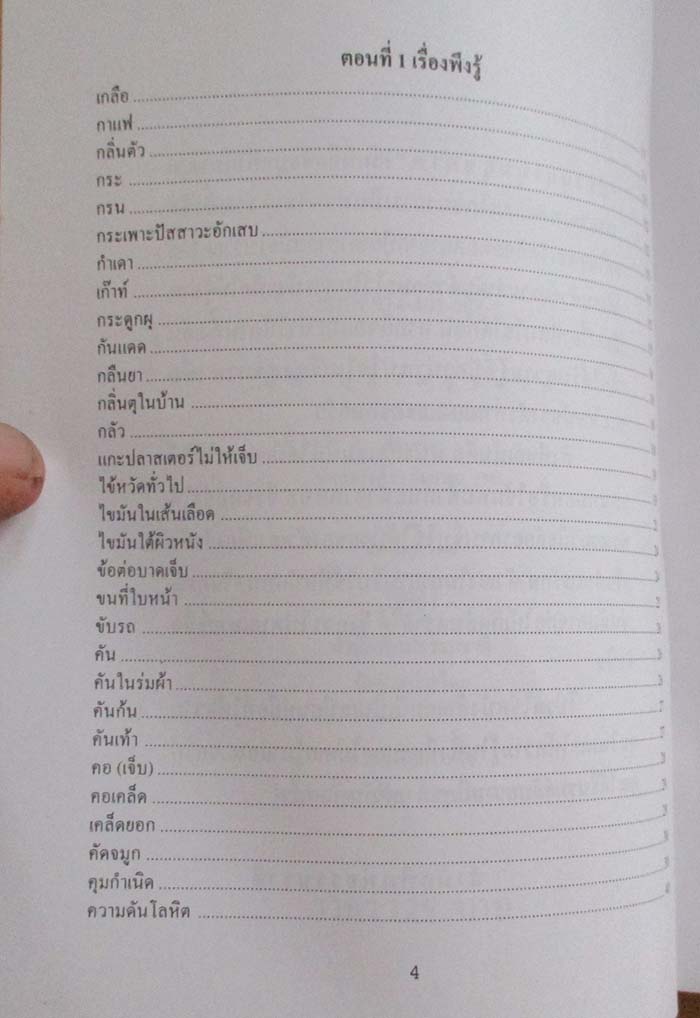 ตอนที่ 1 เรื่องพึงรู้
เกลือ
กาแฟ
กลิ่นตัว
กระ
กรน
กระเพาะปัสสาวะอักเสบ
กำเดา
เก๊าท์
กระดูกผุ
กันแดด
กลืนยา
กลิ่นตุในบ้าน
กลัว
แกะปลาสเตอร์ไม่ให้เจ็บ
ไข้หวัดทั่วไป
ไขมันในเส้นเลือด
ไขมันใต้ผิวหนัง
ข้อต่อบาดเจ็บ
ขนที่ใบหน้า
ขับรถ
คัน
คันในร่มผ้า
คันก้น
คันเท้า
คอ (เจ็บ)
คอเคล็ด
เคล็ดยอก
คัดจมูก
คุมกำเนิด
ความดันโลหิต
4